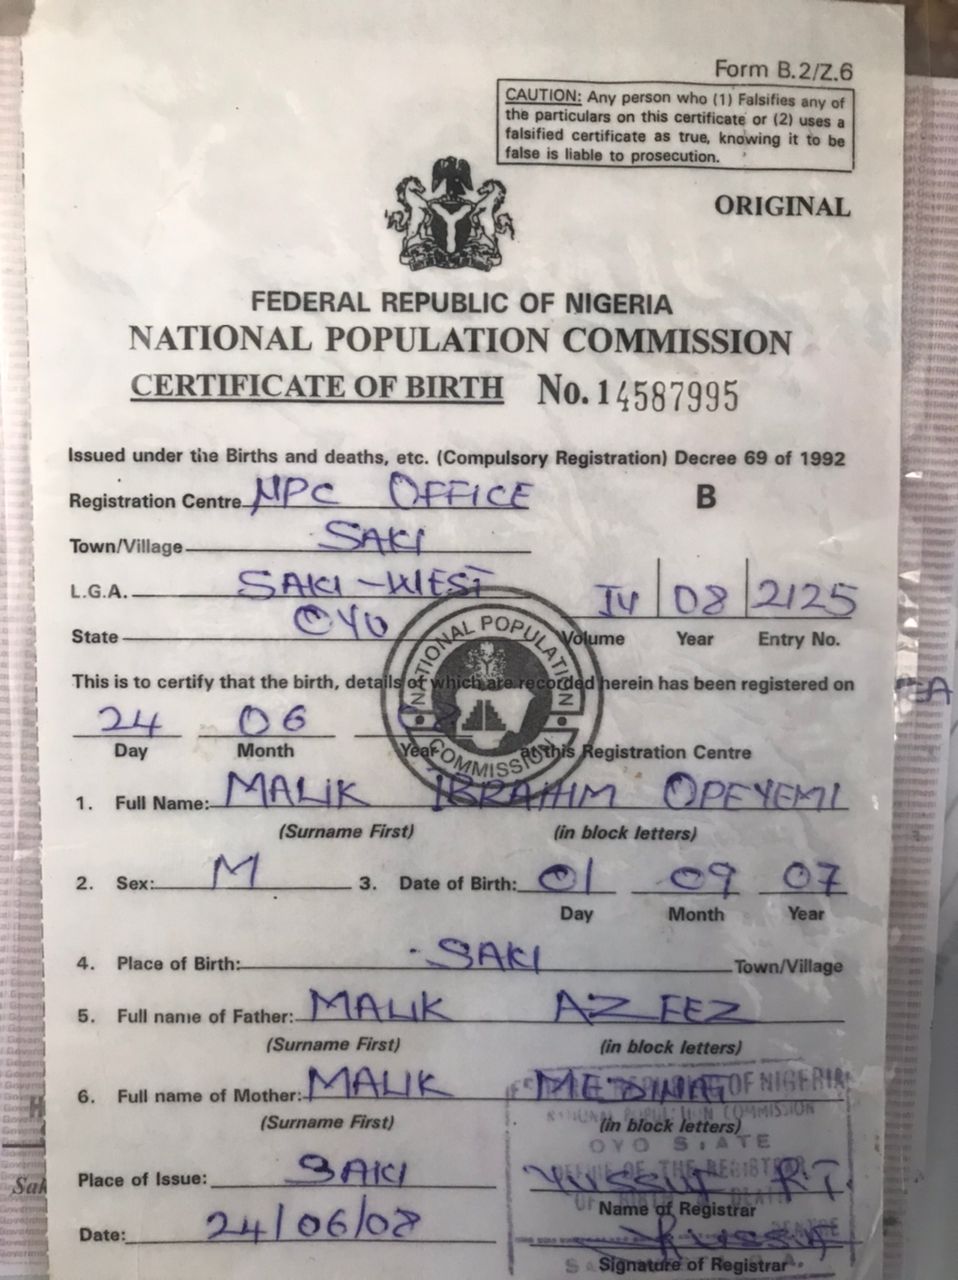 Form B.2/Z.6
CAUTION: Any person who (1) Falsifies any of
the particulars on this certificate or (2) uses a
falsified certificate as true, knowing it to be
false is liable to prosecution.
ORIGINAL
FEDERAL REPUBLIC OF NIGERIA
NATIONAL POPULATION COMMISSION
CERTIFICATE OF BIRTH No. 14587995
Issued under the Births and deaths, etc. (Compulsory Registration) Decree 69 of 1992
Registration Centre NPC OFFICE B
Town/Village SAKI
L.G.A. SAKI-WEST
IV 08 2125
State OYO Volume Year Entry No.
NATIONAL POPULATION COMMISSION
This is to certify that the birth, details of which are recorded herein has been registered on
24 06
Day Month Year at this Registration Centre
1. Full Name: MALIK IBRAHIM OPEYEMI
(Surname First) (in block letters)
2. Sex: M 3. Date of Birth: 01 09 07
Day Month Year
4. Place of Birth: SAKI Town/Village
5. Full name of Father: MALIK AZEEZ
(Surname First) (in block letters)
6. Full name of Mother: MALIK
OF NIGERIA
(Surname First) (in block letters)
COMMISSION
OYO STATE
Place of Issue: SAKI YUSSUF R.T.
OF THE
Name of Registrar
Date: 24/06/08
Signature of Registrar